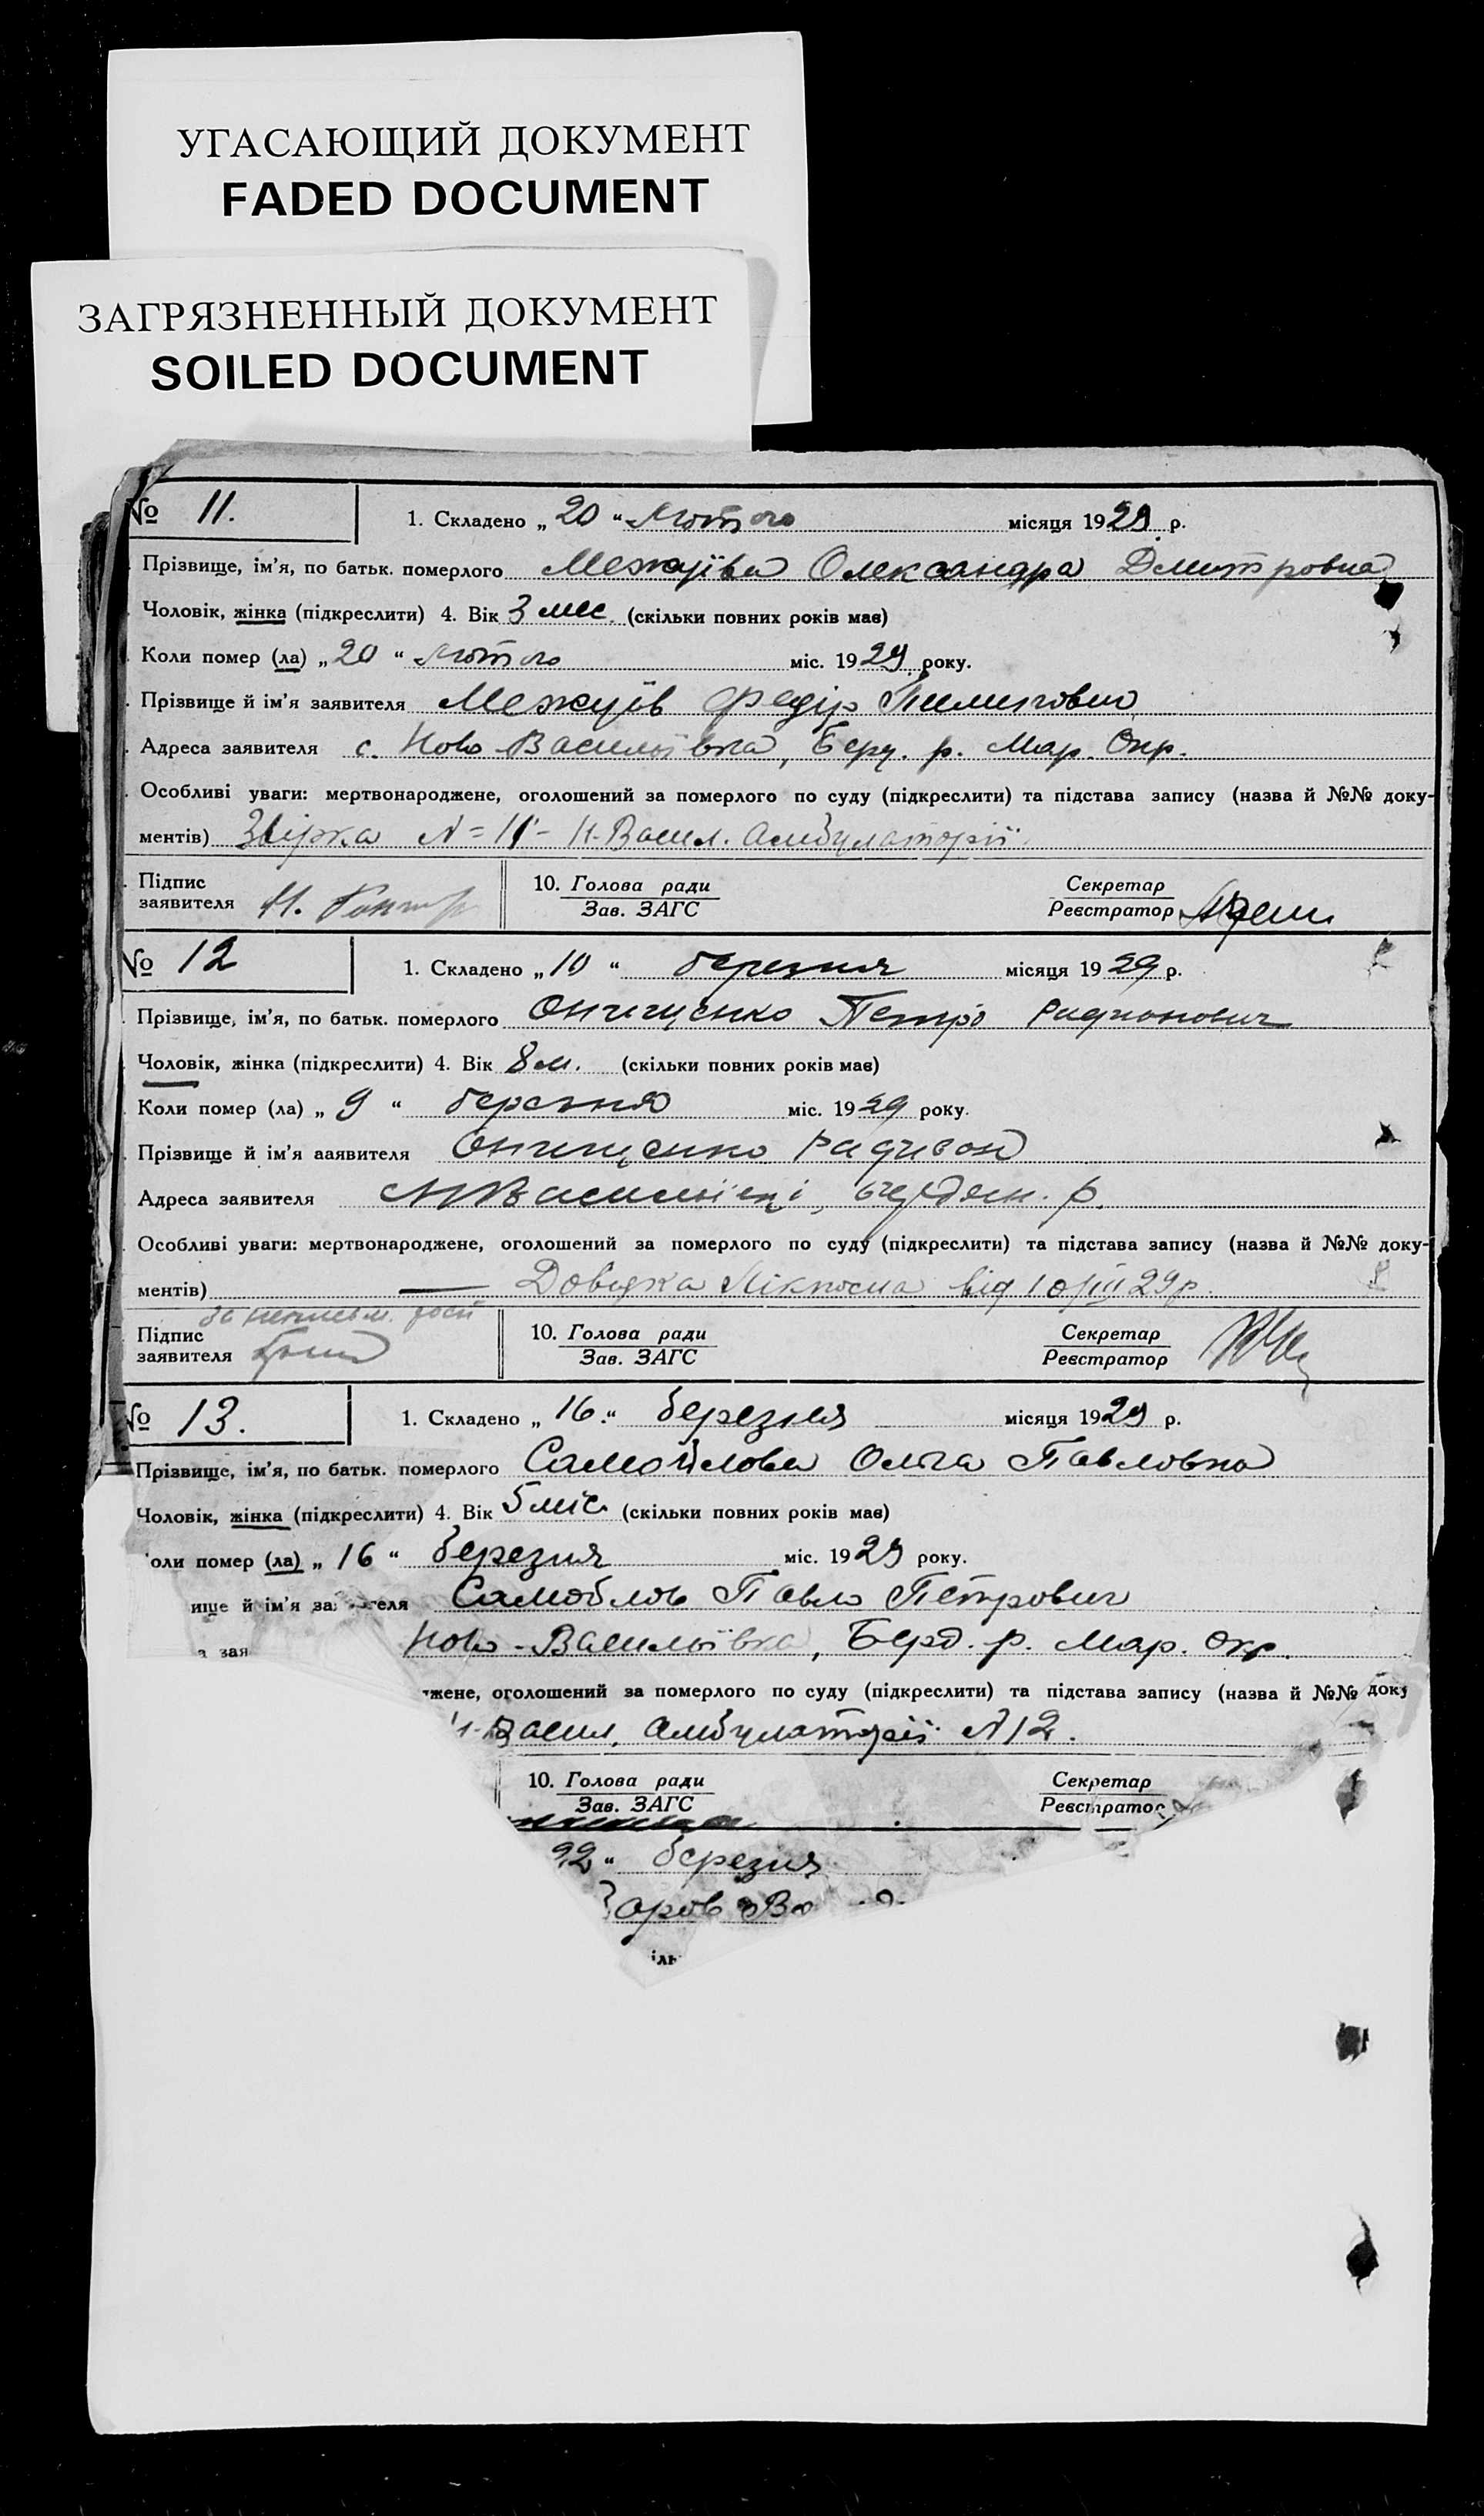 УГАСАЮЩИЙ ДОКУМЕНТ
FADED DOCUMENT
ЗАГРЯЗНЕННЫЙ ДОКУМЕНТ
SOILED DOCUMENT
№ 11. 1. Складено „ 20 “ Лютого місяця 1929 р.
Прізвище, ім'я, по батьк. померлого Межуїва Олександра Дмитровна
Чоловік, жінка (підкреслити) 4. Вік 3 мес. (скільки повних років має)
Коли помер (ла) „ 20 “ Лютого міс. 1929 року.
Прізвище й ім'я заявителя Межуїв Федір
Адреса заявителя с. Ново-Васильївка, Берд. р. Мар. Окр.
Особливі уваги: мертвонароджене, оголошений за померлого по суду (підкреслити) та підстава запису (назва й №№ доку-
ментів) N = 11 - Н-Васил. Амбулаторії.
Підпис 10. Голова ради Секретар
заявителя Зав. ЗАГС Реєстратор
№ 12 1. Складено „ 10 “ березня місяця 1929 р.
Прізвище, ім'я, по батьк. померлого Онищенко Петро Радионович
Чоловік, жінка (підкреслити) 4. Вік 8 м. (скільки повних років має)
Коли помер (ла) „ 9 “ березня міс. 1929 року.
Прізвище й ім'я заявителя Онищенко Радивон
Адреса заявителя Бердян. р.
Особливі уваги: мертвонароджене, оголошений за померлого по суду (підкреслити) та підстава запису (назва й №№ доку-
ментів) — Довідка Лікпома від 10/III 29 р.
Підпис 10. Голова ради Секретар
заявителя Зав. ЗАГС Реєстратор
№ 13. 1. Складено „ 16. “ березня місяця 1929 р.
Прізвище, ім'я, по батьк. померлого Самойлова Ольга Павловна
Чоловік, жінка (підкреслити) 4. Вік 5 міс. (скільки повних років має)
оли помер (ла) „ 16 “ березня міс. 1929 року.
ище й ім'я за теля Самойлов Павло Петрович
а зая Ново-Васильївка, Берд. р. Мар. Окр.
жене, оголошений за померлого по суду (підкреслити) та підстава запису (назва й №№ доку
Н-Васил. амбулаторії N 12.
10. Голова ради Секретар
Зав. ЗАГС Реєстратор
22 “ березня
іль